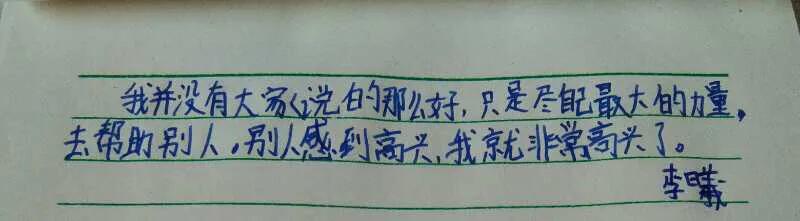 我并没有大家说的那么好，只是尽自己最大的力量，
去帮助别人。别人感到高兴，我就非常高兴了。
李曦